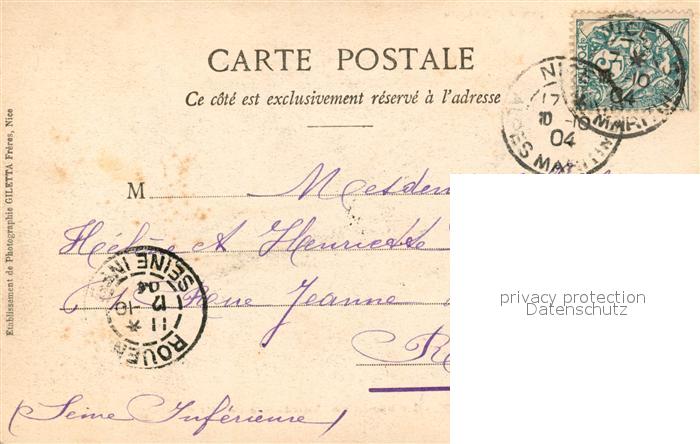 CARTE POSTALE
Ce côté est exclusivement réservé à l'adresse
NICE
17
10 -10
04
ALPES MARITIMES
NICE
10
04
MARITIMES
M Mesdem
Hélène & Henriette
Rue Jeanne
R
(Seine Inférieure)
ROUEN
11 *
13 -10
04
SEINE INF
Etablissement de Photographie GILETTA Frères, Nice
privacy protection
Datenschutz